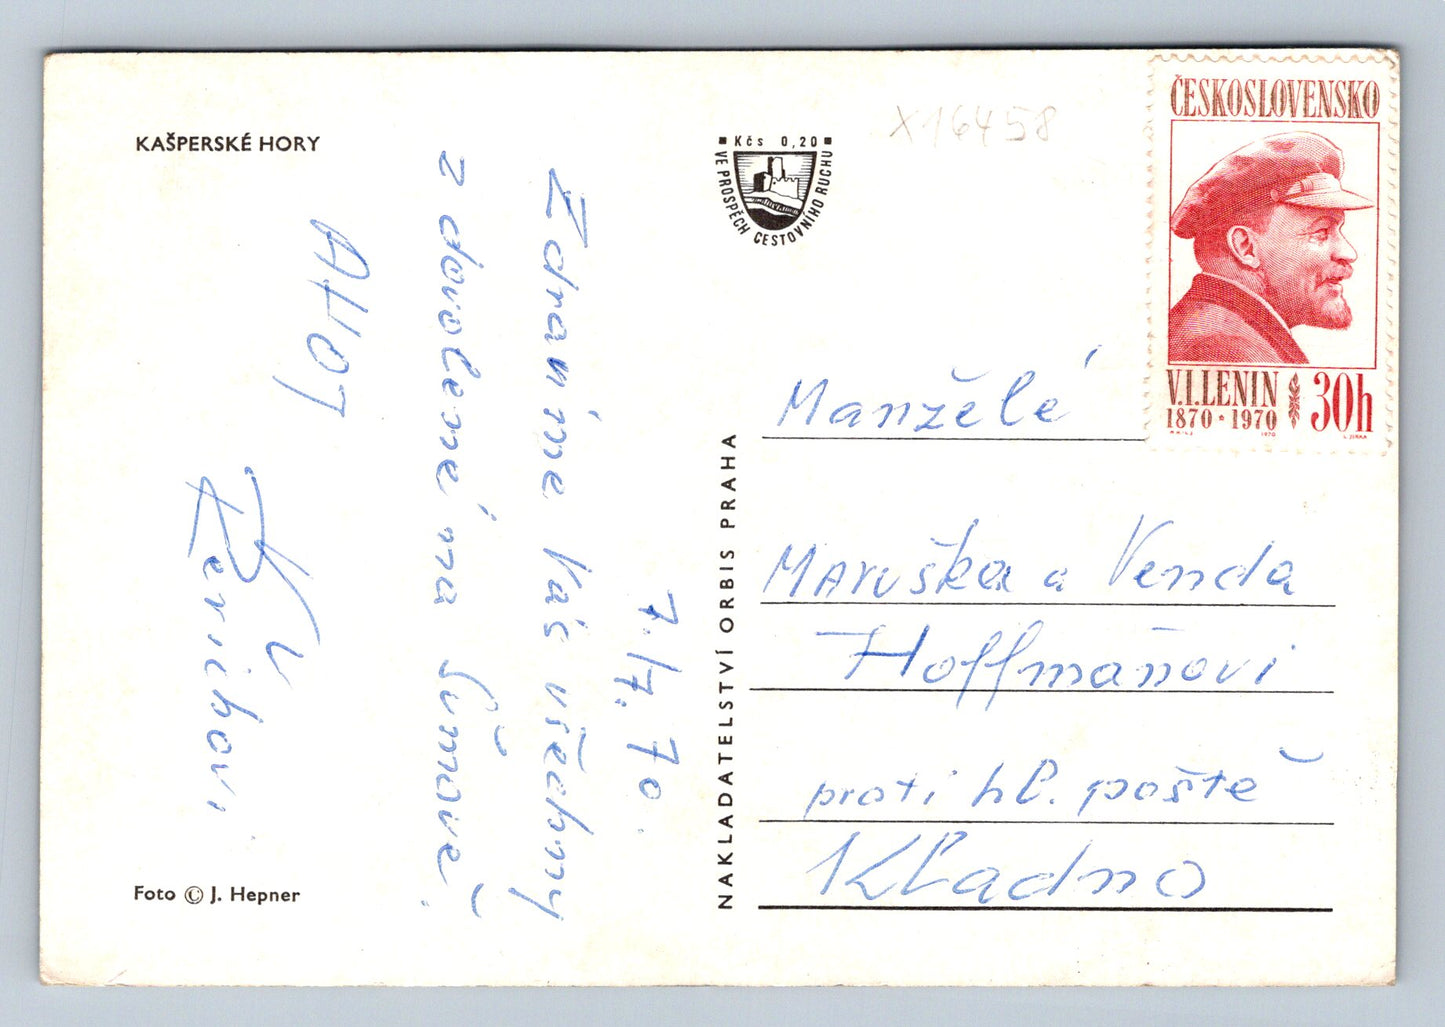 KAŠPERSKÉ HORY
7./7. 70
Zdravíme Vás všechny
z dovolené na Šumavě.
AHOJ
Foto © J. Hepner
Kčs 0,20
VE PROSPĚCH CESTOVNÍHO RUCHU
NAKLADATELSTVÍ ORBIS PRAHA
X16458
ČESKOSLOVENSKO
V.I.LENIN
1870 * 1970
30h
1970
L. JIRKA
Manželé
Maruška a Venda
Hoffmaňovi
proti hl. poště
Kladno